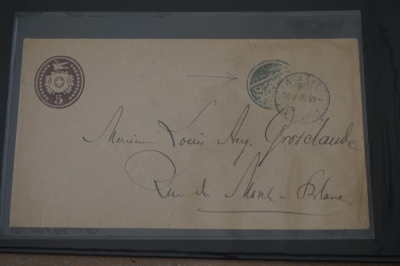 5
Monsieur Louis Aug. Grosclaude
Rue du Mont-Blanc